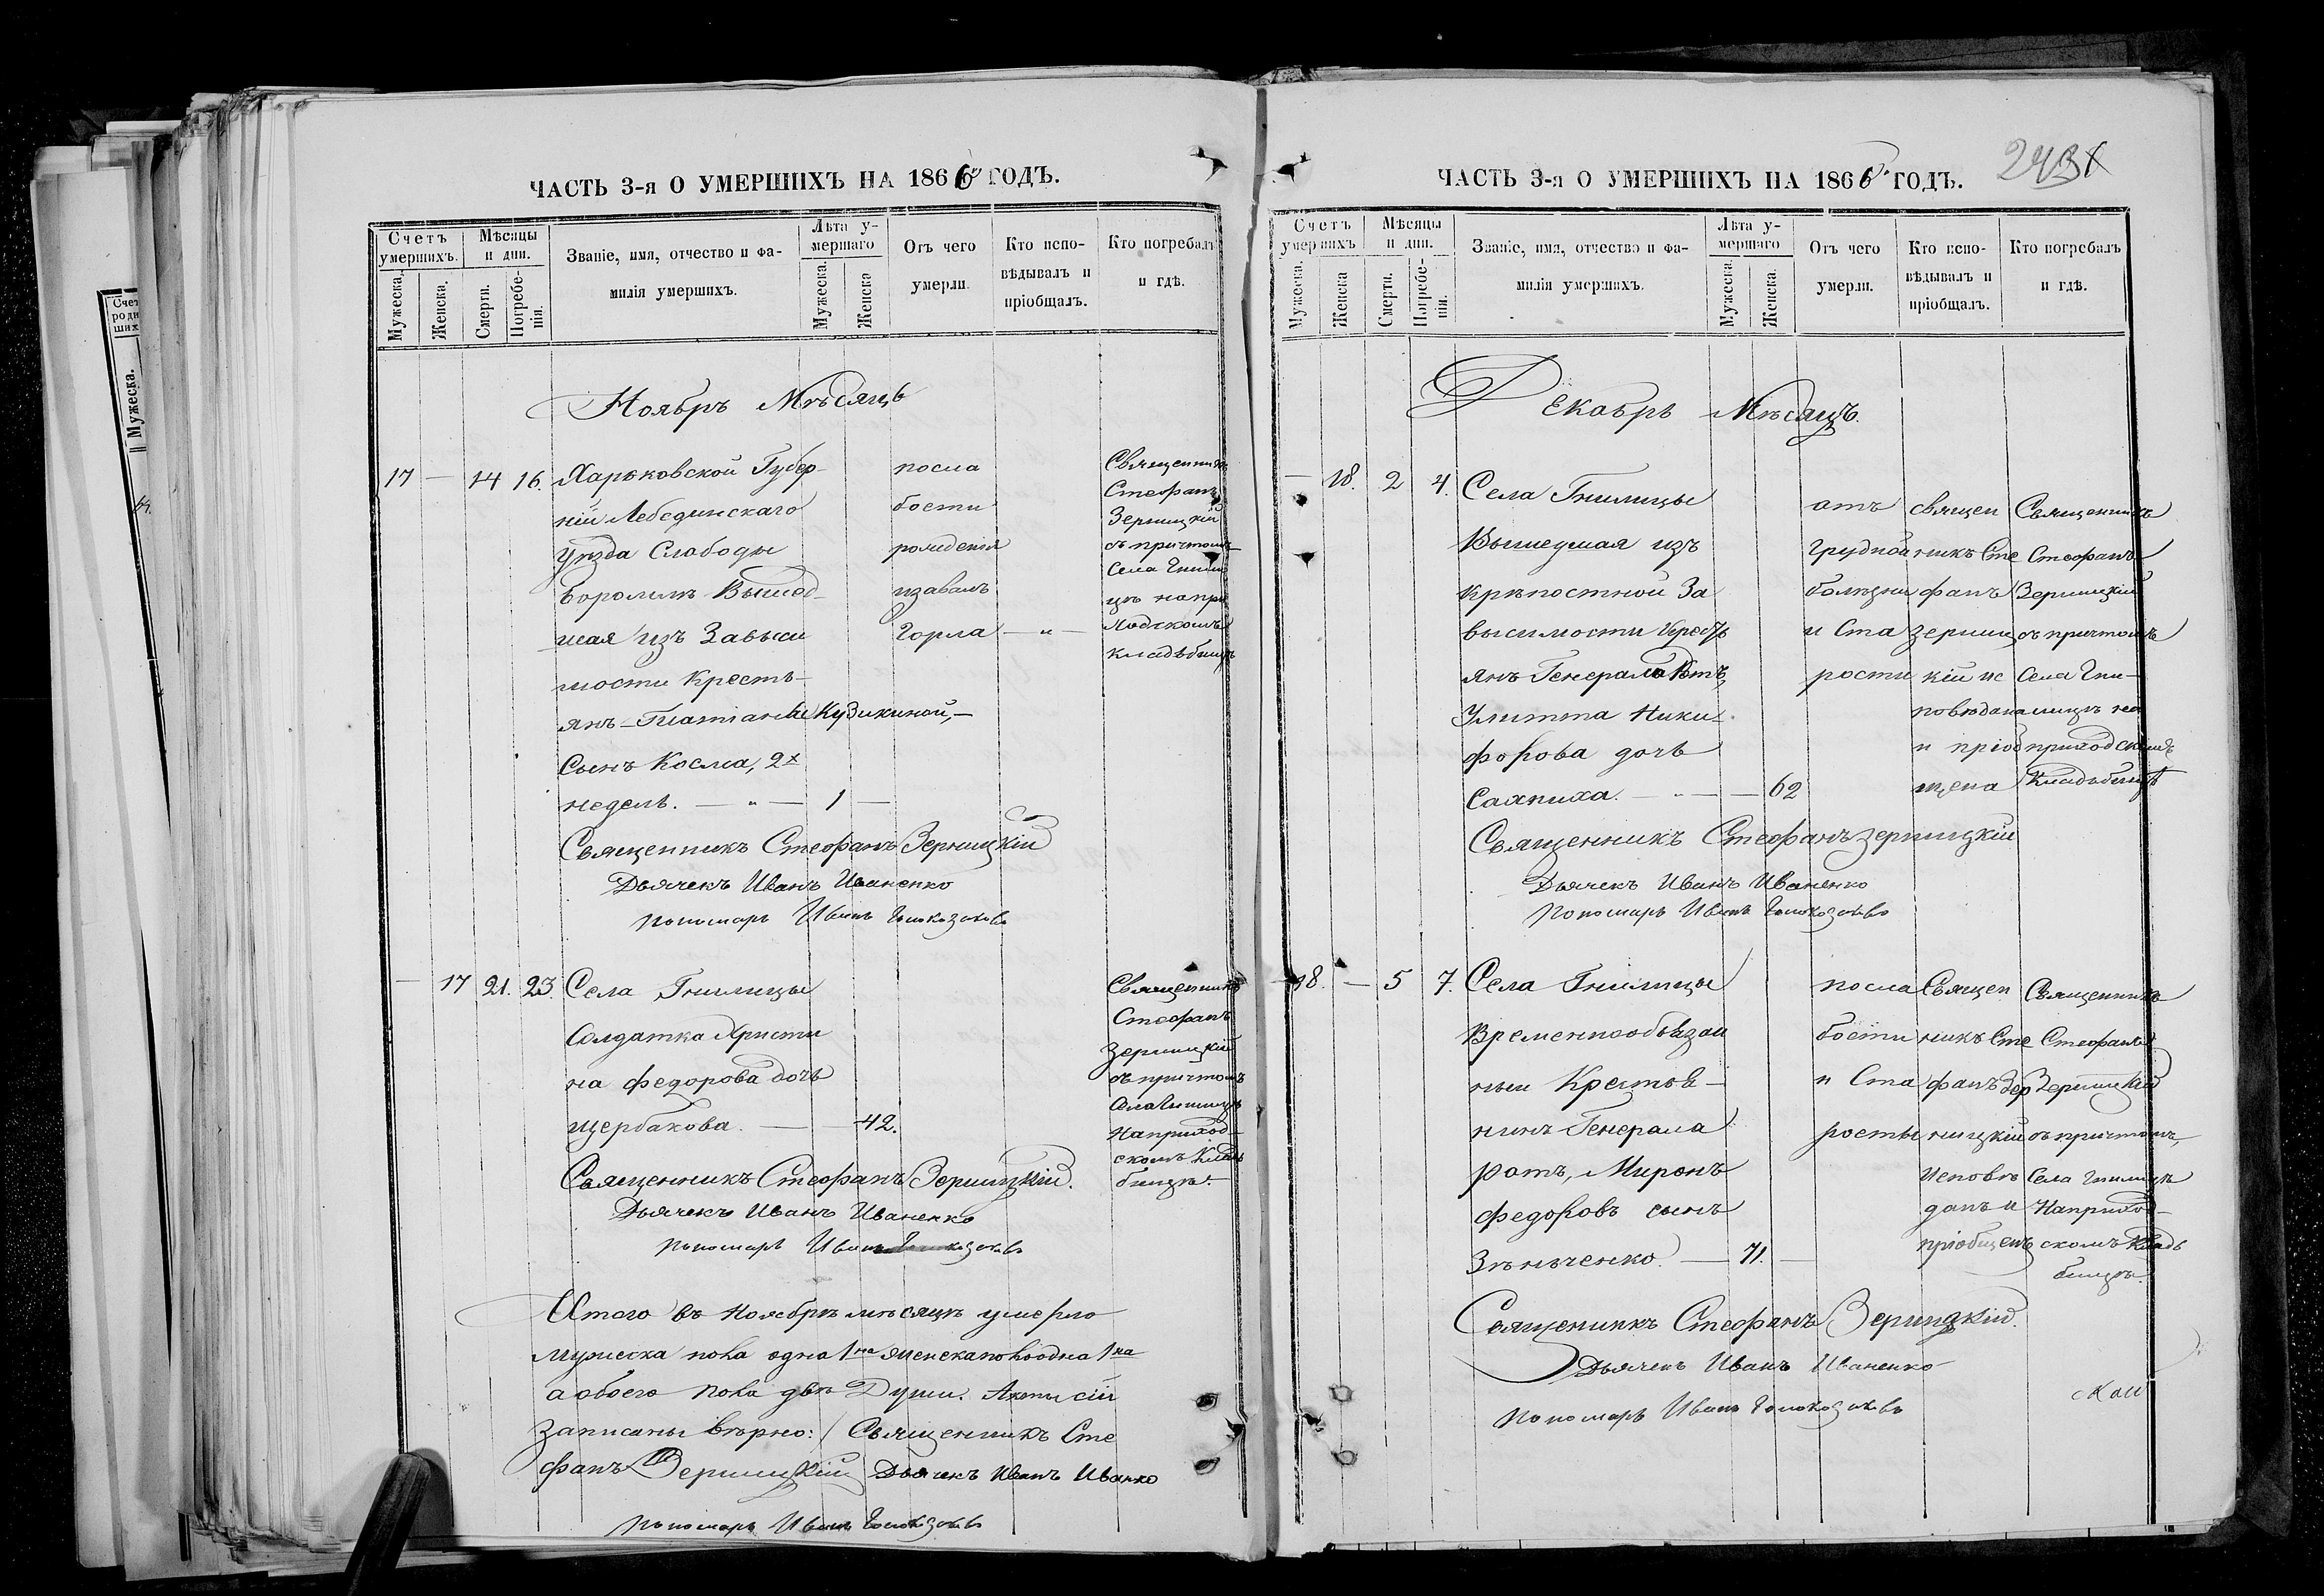 ЧАСТЬ 3-я О УМЕРШИХЪ НА 1866 ГОДЪ.
Счетъ умершихъ.
Мѣсяцы и дни.
Званіе, имя, отчество и фамилія умершихъ.
Лѣта умершаго
Отъ чего умерли.
Кто исповѣдывалъ и пріобщалъ.
Кто погребалъ и гдѣ.
Мужеска.
Женска.
Смерти.
Погребенія.
Мужеска.
Женска
Ноябръ Мѣсяцъ
17 — 14 16. Харьковской Губер-
ніи Лебединскаго
Уѣзда Слободы
Боромль Вышед-
шая изъ Зависи
мости Кресть-
янъ Татіаны Кузикиной,—
Сынъ Косма, 2х
недель. — " — 1 —
посла
бости
рожденія
изавалъ
Горла — " —
Священникъ
Стефанъ
Зерницкій
съ причтомъ
Села Гнили
цъ напри
ходскомъ
кладъбищѣ
Священникъ Стефанъ Зерницкій
Дьячекъ Иванъ Иваненко
Пономарь Иванъ
— 17 21. 23. Села Гнилицы
Солдатка Христи
на Федорова дочь
Щербакова. — — 42.
Священникъ
Стефанъ
Зерницкій
съ причтомъ
Села Гнилицъ
Наприход-
скомъ Кладъ
бищѣ.
Священникъ Стефанъ Зерницкій.
Дьячекъ Иванъ Иваненко
Пономарь Иванъ
Итого въ Ноябрѣ мѣсяцѣ умерло
мужеска пола одна 1на женска пола одна 1на
а обоего пола двѣ Души. Акты сіи
записаны вѣрно: / Священникъ Сте
фанъ Зерницкій Дьячекъ Иванъ Иванко
Пономарь Иванъ
ЧАСТЬ 3-я О УМЕРШИХЪ НА 1866 ГОДЪ.
Счетъ умершихъ
Мѣсяцы и дни.
Званіе, имя, отчество и фамилія умершихъ.
Лѣта умершаго
Отъ чего умерли.
Кто исповѣдывалъ и пріобщалъ.
Кто погребалъ и гдѣ.
Мужеска.
Женска
Смерти.
Погребенія.
Мужеска.
Женска.
Декабрь Мѣсяцъ.
— 18. 2 4. Села Гнилицы
Вышедшая изъ
крѣпостной За
высимости Кресть
янъ Генерала Ротъ,
Улитта Ники-
форова дочь
— " — — 62
отъ
грудной
болѣзни
и Ста
рости
священ
никъ Сте
фанъ
Зерниц
кій ис
повѣдана
и пріоб
щена
Священникъ
Стефанъ
Зерницкій
съ причтомъ
Села Гни-
лицъ на
приходскомъ
Кладъбищѣ
Священникъ Стефанъ Зерницкій
Дьячекъ Иванъ Иваненко
Пономарь Иванъ
18. — 5 7. Села Гнилицы
Временнообязан
ный Крестья-
нинъ Генерала
Ротъ, Миронъ
Федоровъ сынъ
Зѣньченко. — 71. —
посла
бости
и Ста
рости
Священ
никъ Сте
фанъ Зер
ницкій
Исповѣ
данъ и
пріобщенъ
Священникъ
Стефанъ
Зерницкій
съ причтомъ,
Села Гнилицъ
Наприход-
скомъ Кладъ
бищѣ.
Священникъ Стефанъ Зерницкій.
Дьячекъ Иванъ Иваненко
Пономарь Иванъ